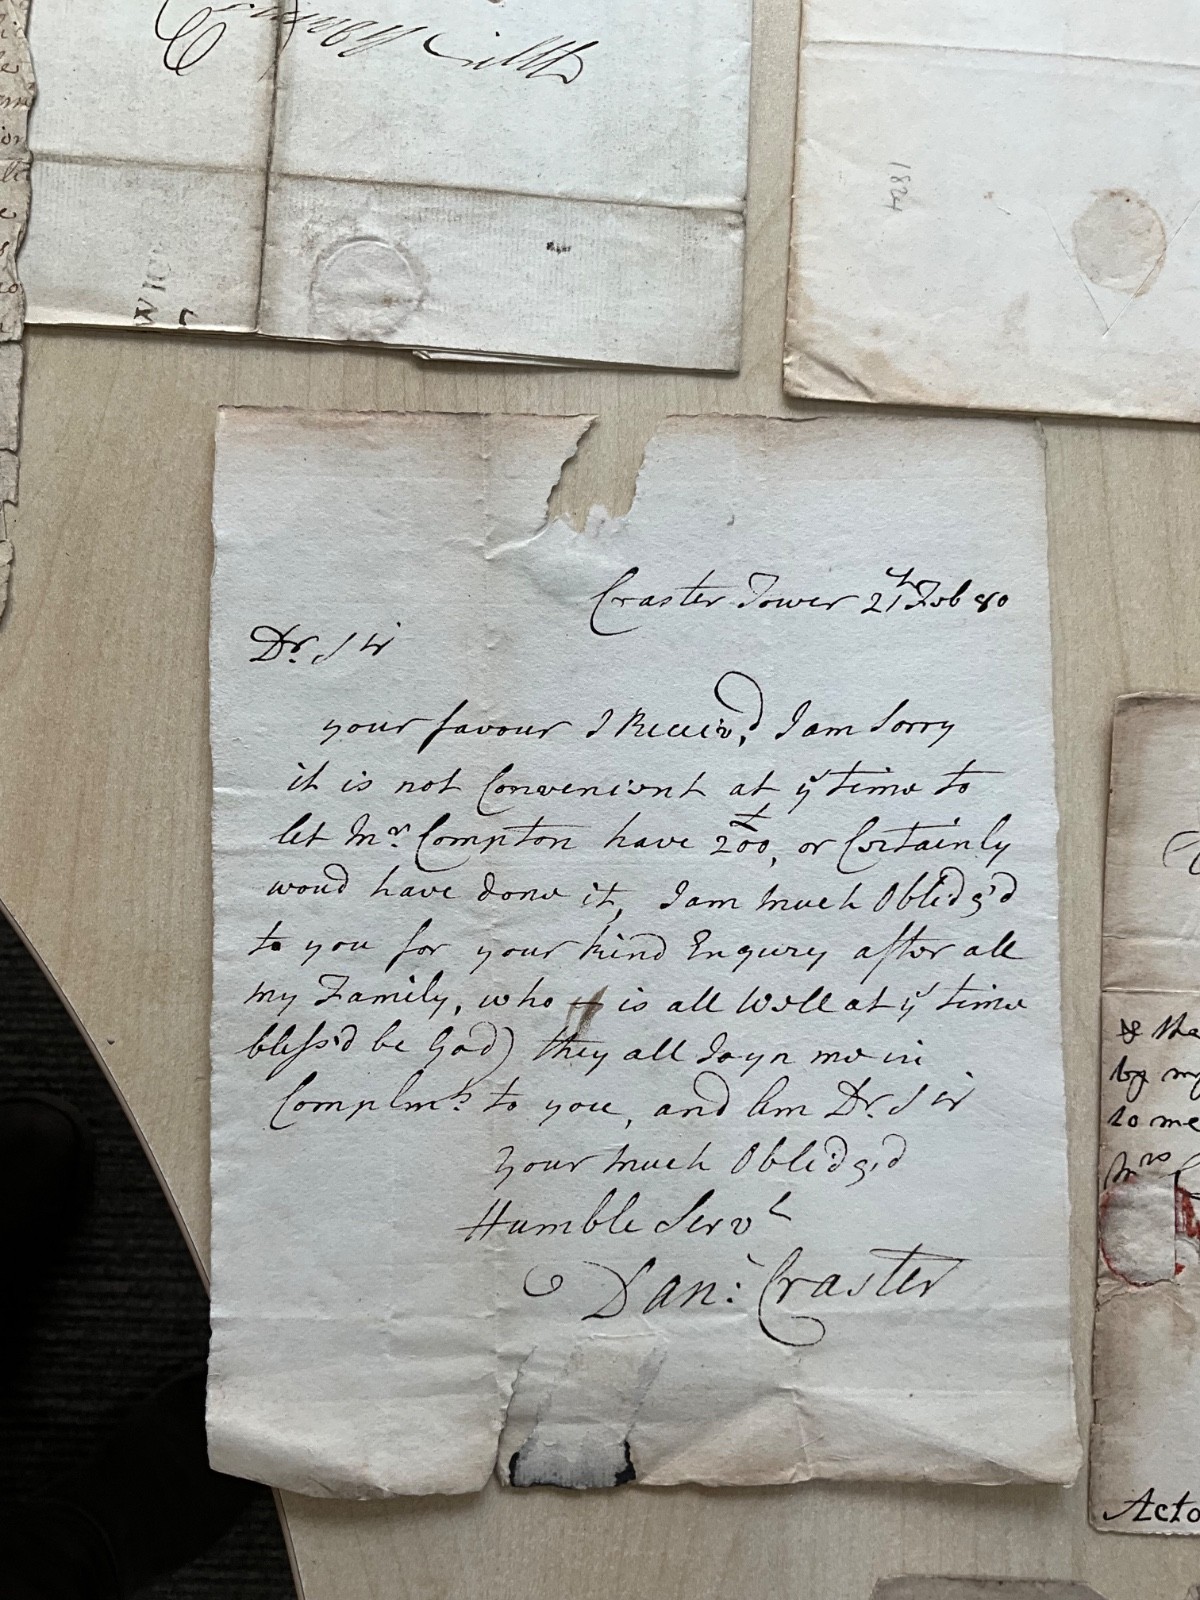 1824
Craster Tower 21th Feb 80
Dr. Sir
your favour I Receiv,d I am Sorry
it is not Convenient at ys time to
let Mr. Compton have £200, or Certainly
woud have done it, I am much Oblidg'd
to you for your kind Enqury after all
my Family, who is all Well at ys time
bless'd be God) they all Joyn me in
Complmts to you, and Am Dr. Sir
your much Oblidg,d
Humble Servt
Dan: Craster
& tha
by my
to me
Mrs
Acto